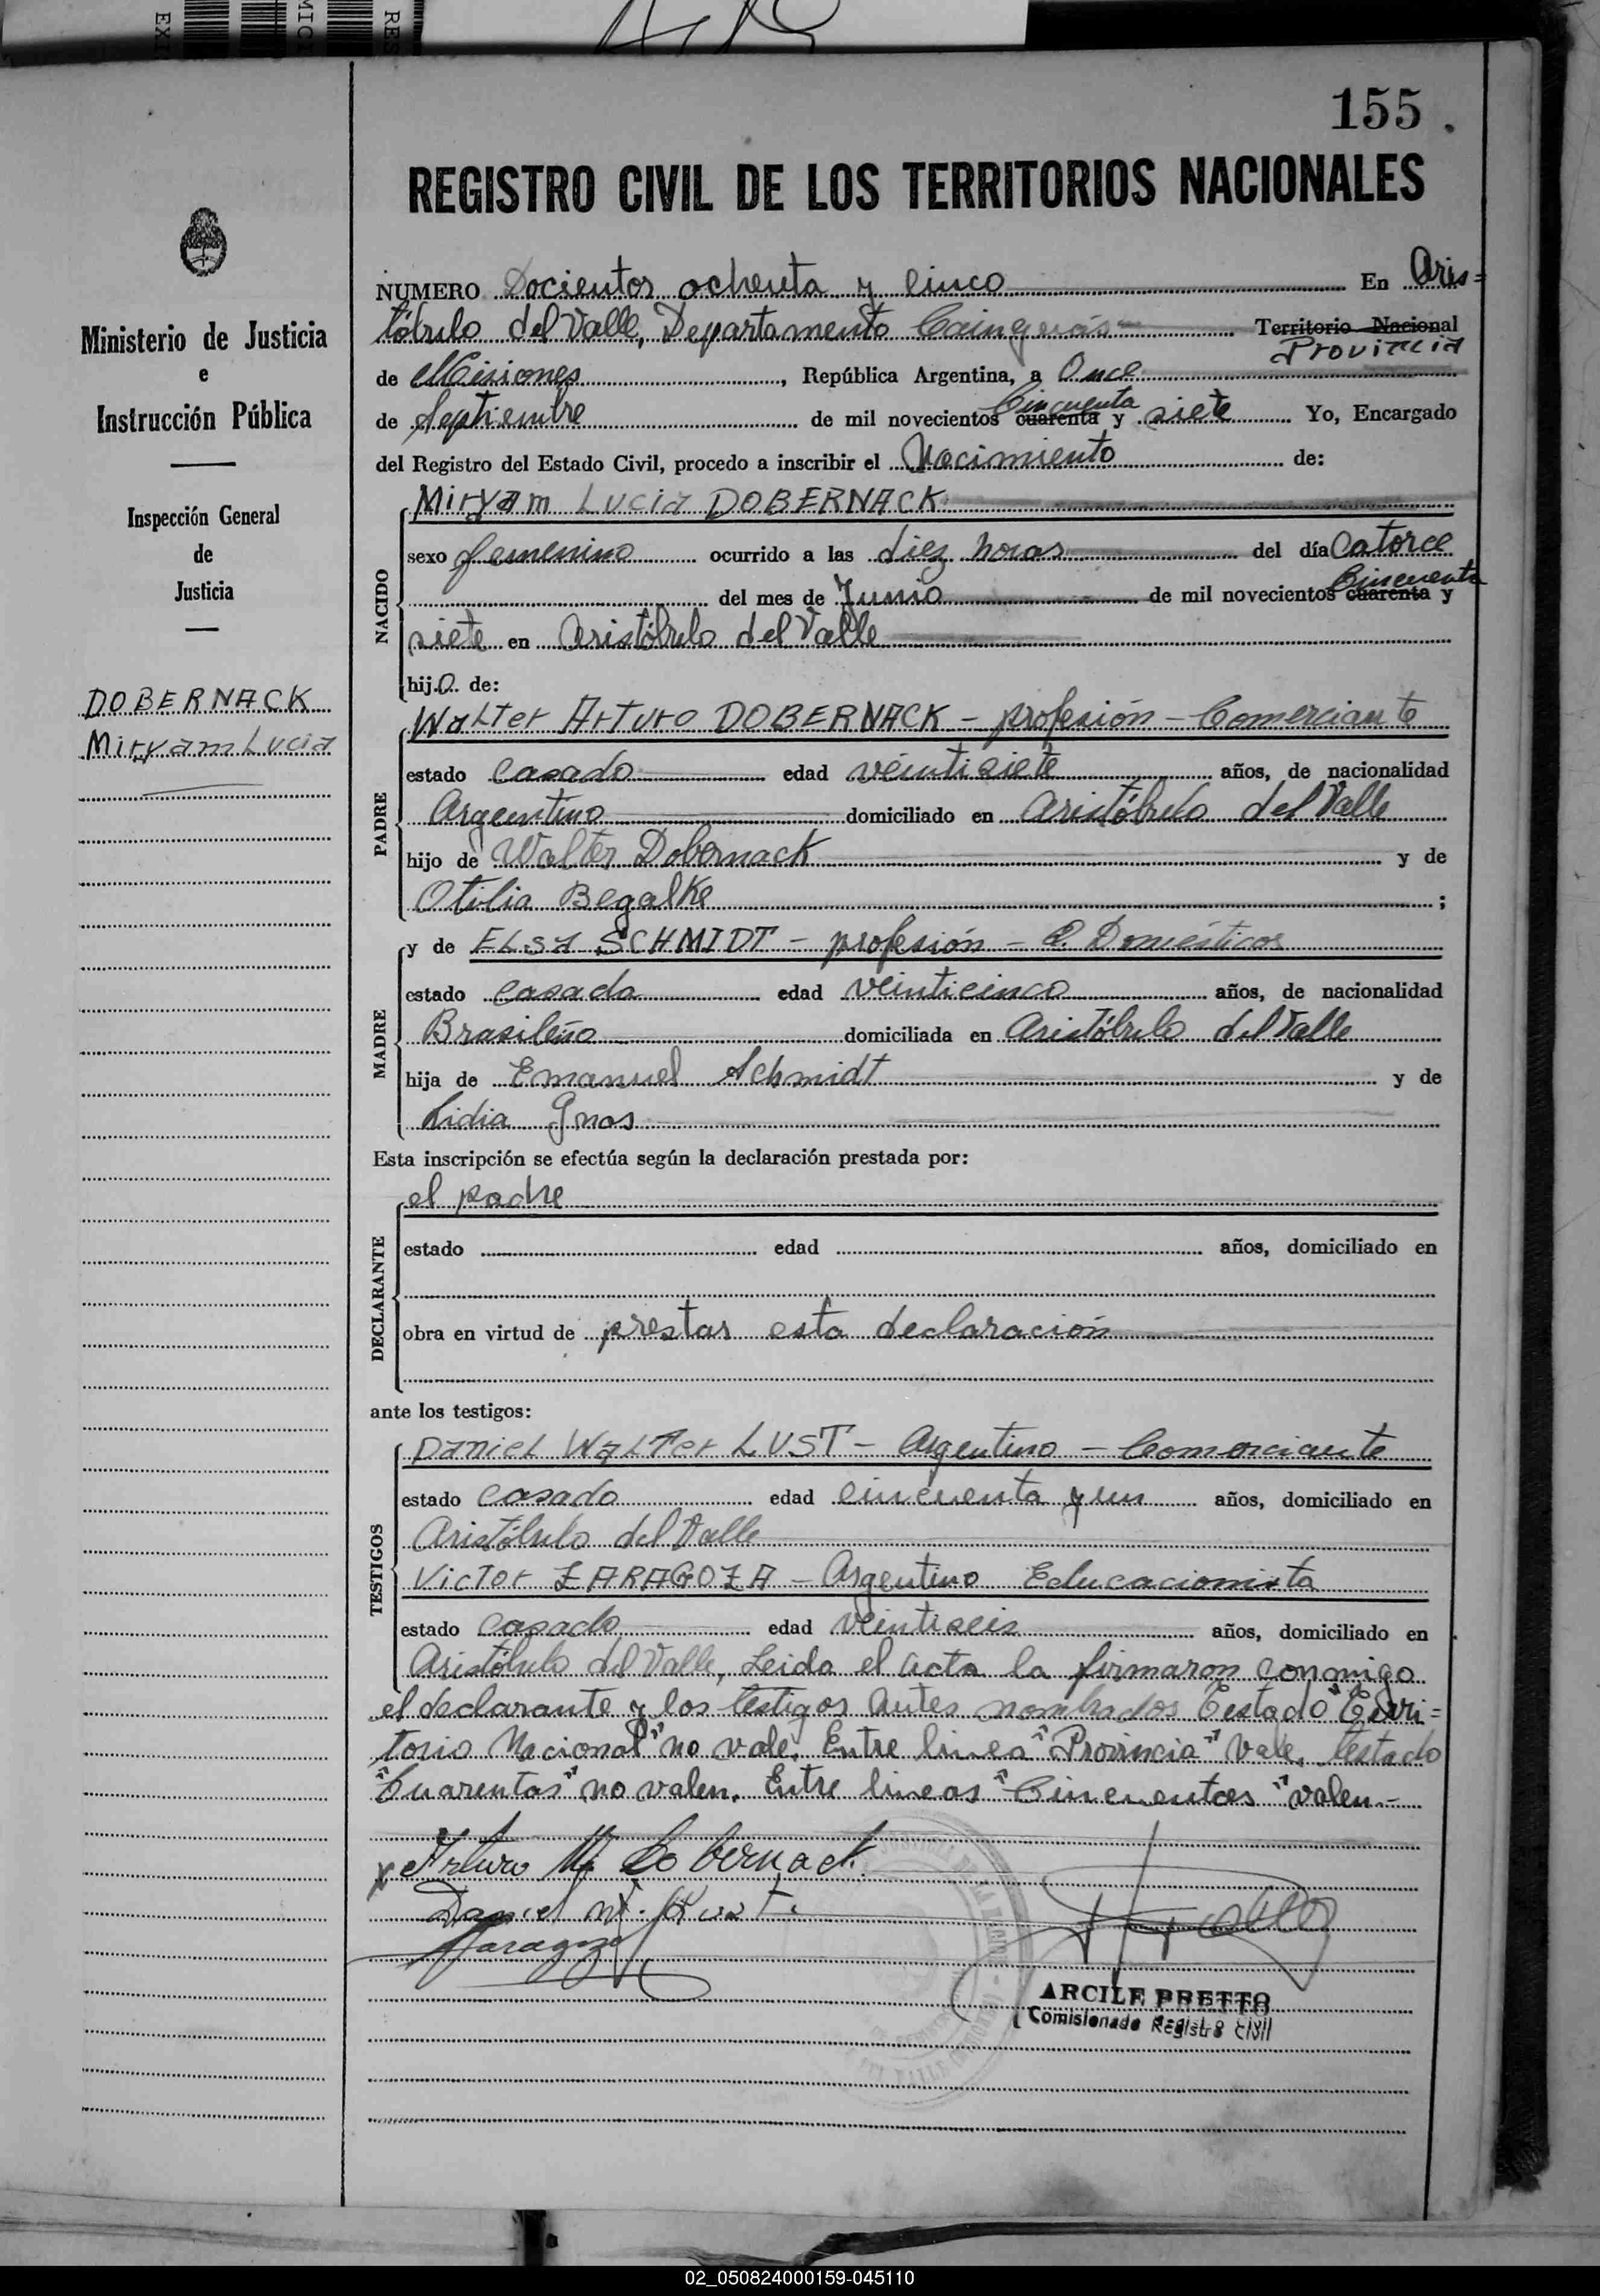 155.
REGISTRO CIVIL DE LOS TERRITORIOS NACIONALES
Ministerio de Justicia
e
Instrucción Pública
Inspección General
de
Justicia
DOBERNACK
Miryam Lucia
NUMERO Docientos ochenta y cinco En Aris=
tóbulo del Valle, Departamento Cainguás Territorio Nacional
Provincia
de Misiones, República Argentina, a Once
de Septiembre de mil novecientos cuarenta Cincuenta y siete Yo, Encargado
del Registro del Estado Civil, procedo a inscribir el Nacimiento de:
NACIDO
Miryam Lucia DOBERNACK
sexo femenino ocurrido a las diez horas del día Catorce
del mes de Junio de mil novecientos cuarenta Cincuenta y
siete en Aristóbulo del Valle
hija de:
PADRE
Walter Arturo DOBERNACK - profesión - Comerciante
estado casado edad veintisiete años, de nacionalidad
Argentino domiciliado en Aristóbulo del Valle
hijo de Walter Dobernack y de
Otilia Begalke ;
MADRE
y de Elsa SCHMIDT - profesión - Q. Domésticos
estado casada edad veinticinco años, de nacionalidad
Brasileña domiciliada en Aristóbulo del Valle
hija de Emanuel Schmidt y de
Lidia Gnas
Esta inscripción se efectúa según la declaración prestada por:
DECLARANTE
el padre
estado edad años, domiciliado en
obra en virtud de prestar esta declaración
ante los testigos:
TESTIGOS
Daniel Walter LUST - Argentino - Comerciante
estado casado edad cincuenta y un años, domiciliado en
Aristóbulo del Valle
Victor ZARAGOZA - Argentino Educacionista
estado casado edad veintiseis años, domiciliado en
Aristóbulo del Valle, Leida el acta la firmaron conmigo
el declarante y los testigos antes nombrados Testado "Terri=
torio Nacional" no vale. Entre linea "Provincia" vale. Testado
"Cuarentas" no valen. Entre lineas "Cincuentas" valen.-
x Arturo W. Dobernack.
Daniel W. Lust.
Zaragoza
ARCILE PRETTO
Comisionado Registro Civil
02_050824000159-045110